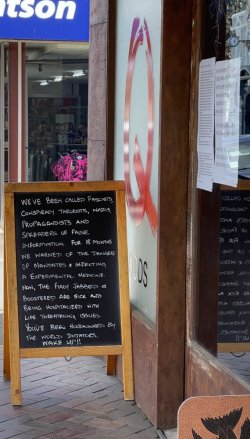 atson
WE'VE BEEN CALLED FASCISTS,
CONSPIRACY THEORISTS, NAZIS,
PROPAGANDISTS AND
SPREADERS OF FALSE
INFORMATION. FOR 18 MONTHS
WE WARNED OF THE DANGER
OF MANDATES & INJECTING
A EXPERIMENTAL MEDICINE.
NOW, THE FULLY JABBED &
BOOSTERED ARE SICK AND
BEING HOSPITALIZED WITH
LIFE THREATENING ISSUES.
YOU'VE BEEN HOODWINKED BY
THE WORLD DICTATORS.
WAKE UP!!
Q
OS